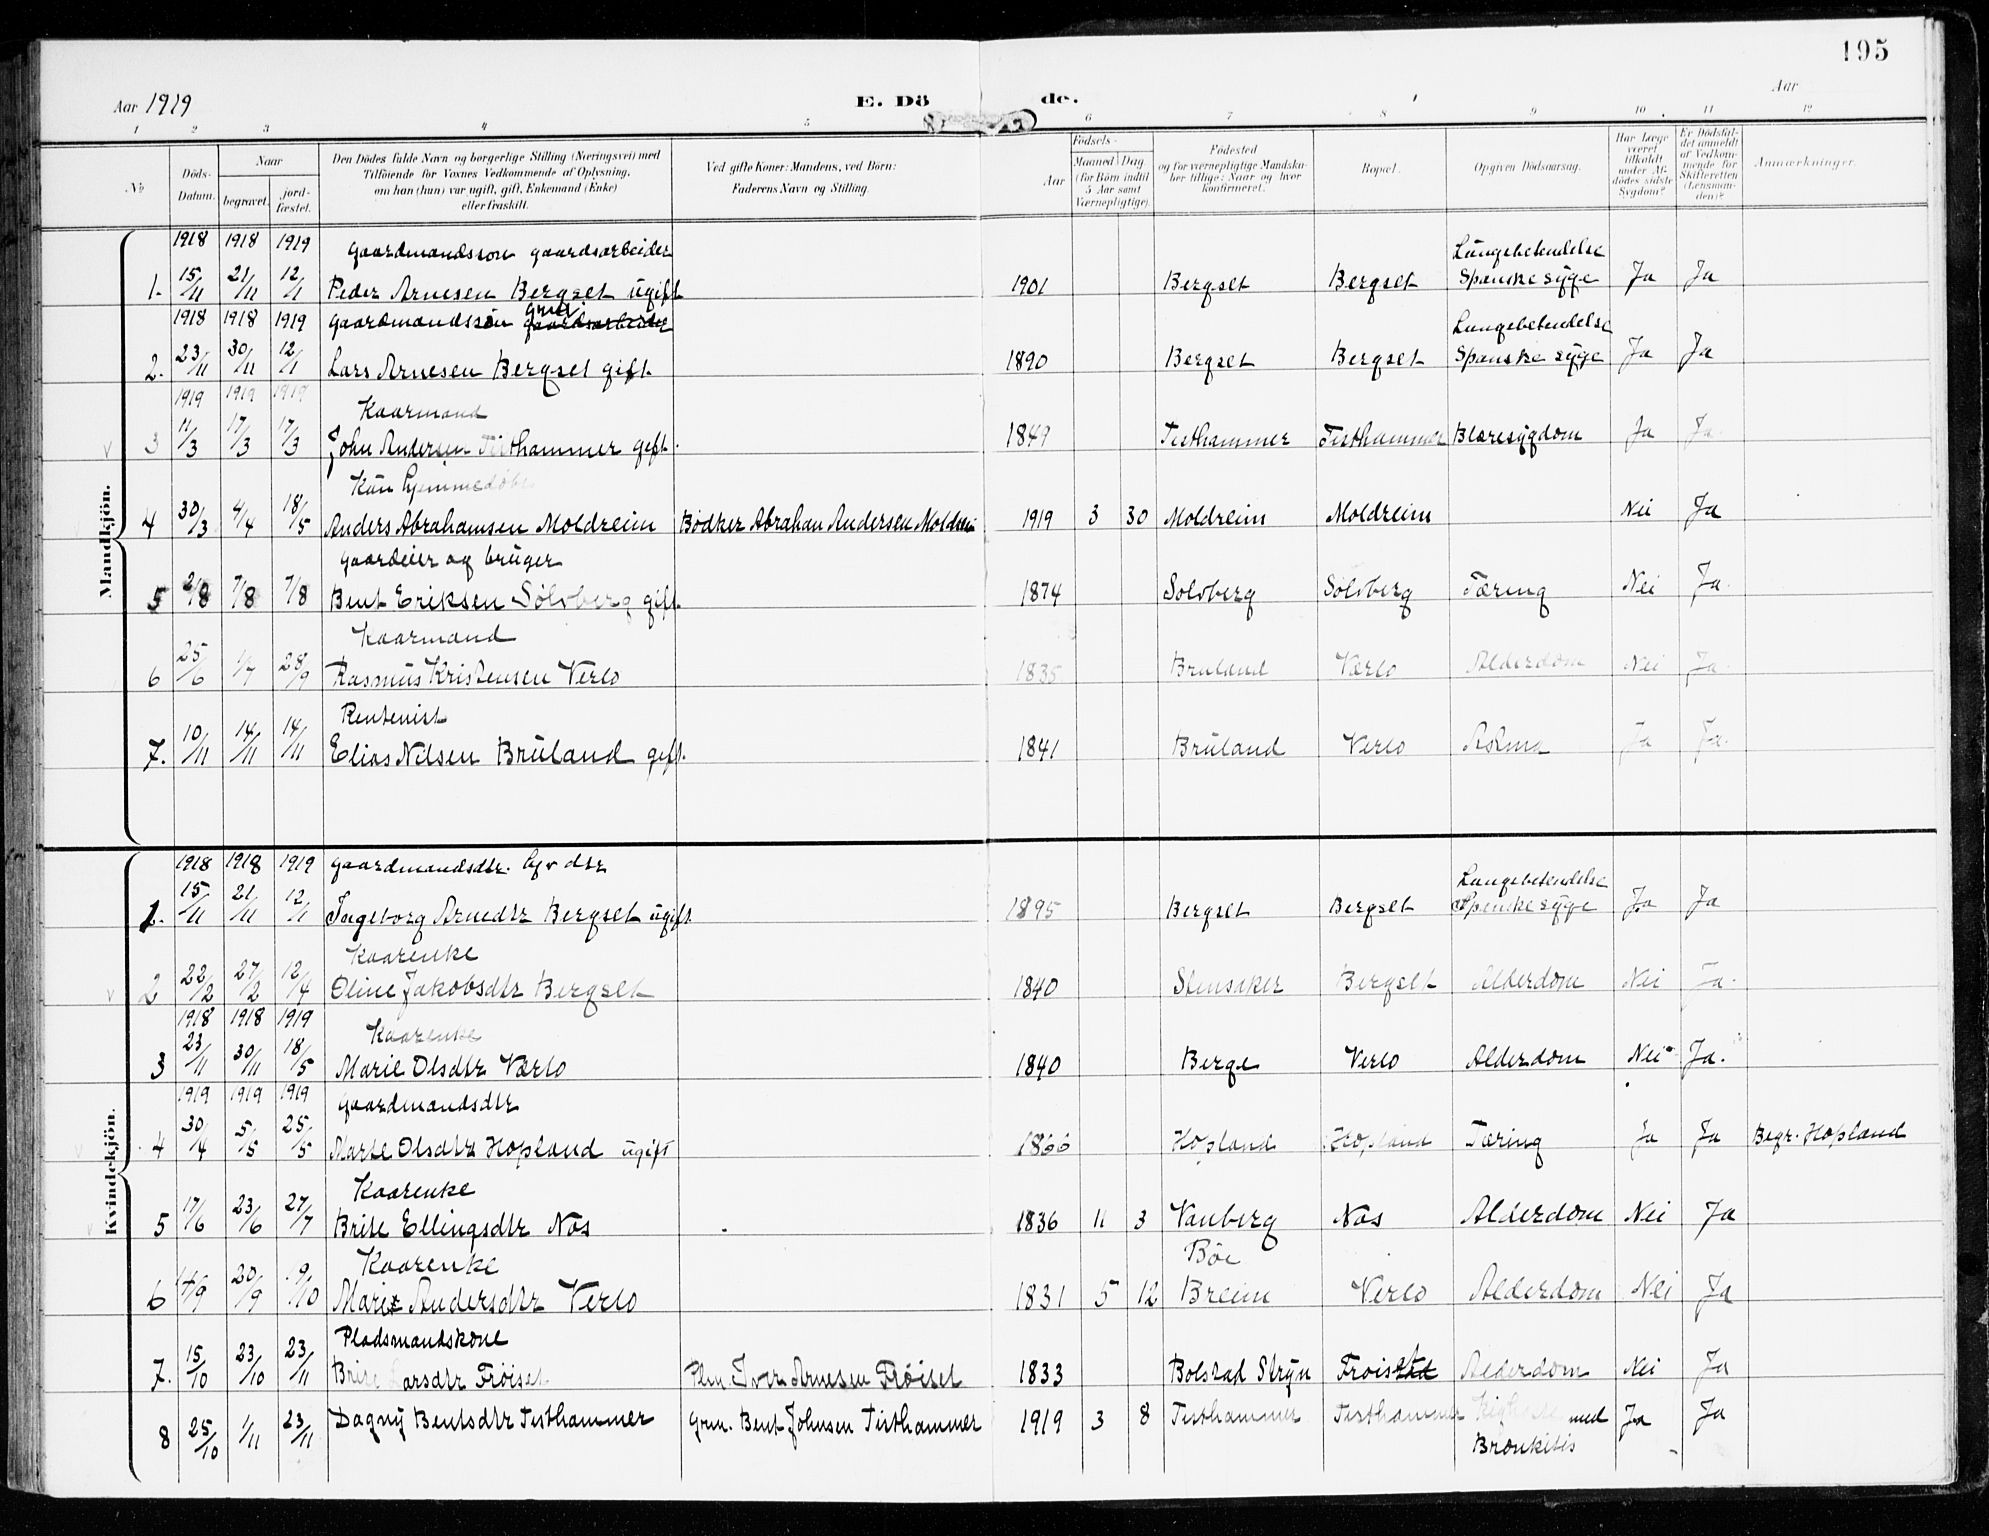 195
Aar 1919
E. Dö de.
Aar
1 2 3 4 5 6 7 8 9 10 11 12
№
Döds-Datum.
Naar
begravet.
jord-fæstet.
Den Dödes fulde Navn og borgerlige Stilling (Næringsvei) med
Tilföiende for Voxnes Vedkommende af Oplysning,
om han (hun) var ugift, gift, Enkemand (Enke)
eller fraskilt.
Ved gifte Koner: Mandens, ved Börn:
Faderens Navn og Stilling.
Födsels-
Aar
Maaned Dag
(for Börn indtil
5 Aar samt
Værnepligtige).
Födested
og for værnepligtige Mandska-
ber tillige: Naar og hvor
konfirmeret.
Bopæl.
Opgiven Dödsaarsag.
Har Læge
været
tilkaldt
under Af-
dödes sidste
Sygdom?
Er Dödsfal-
det anmeldt
af Vedkom-
mende for
Skifteretten
(Lensman-
den)?
Anmærkninger.
Mandkjön.
1918 1918 1919 Gaardmandsson gaardsarbeider Lungebetendelse
1. 15/11 21/11 12/1 Peder Arnesen Bergset ugift 1901 Bergset Bergset Spanske syge Ja Ja
1918 1918 1919 Gaardmandssön gaardsarbeider Lungebetendelse
2. 23/11 30/11 12/1 Lars Arnesen Bergset gift. 1890 Bergset Bergset Spanske syge Ja Ja
1919 1919 1919 Kaarmand
3 11/3 17/3 17/3 John Andersen Tisthammer gift. 1849 Tisthammer Tisthammer Blæresygdom Ja Ja.
Kun hjemmedøbt
4 30/3 4/4 18/5 Anders Abrahamsen Moldreim Bødker Abraham Andersen Moldreim 1919 3 30 Moldreim Moldreim Nei Ja
Gaardeier og bruger
5 2/8 7/8 7/8 Bent Eriksen Sölvberg gift. 1874 Solvberg Sölvberg Tæring Nei Ja.
Kaarmand
6 25/6 1/7 28/9 Rasmus Kristensen Verlo 1835 Bruland Værlo Alderdom Nei Ja.
Rentenist
7. 10/11 14/11 14/11 Elias Nilsen Bruland gift. 1841 Bruland Verlo Astma Ja Ja.
Kvindekjön.
1918 1918 1919 Gaardmandsdtr. Lungebetendelse
1. 15/11 21/11 12/1 Ingeborg Arnedtr Bergset ugift. 1895 Bergset Bergset Spanske syge Ja Ja
Kaarenke
2 22/2 27/2 12/4 Oline Jakobsdtr Bergset 1840 Stensaker Bergset Alderdom Nei Ja.
1918 1918 1919 Kaarenke
3 23/11 30/11 18/5 Marie Olsdtr Værlo 1840 Berge Verlo Alderdom Nei Ja.
1919 1919 1919 Gaardmandsdtr
4 30/4 5/5 25/5 Marte Olsdtr Hopland ugift 1866 Hopland Hopland Tæring Ja Ja Begr. Hopland
Kaarenke
5 17/6 23/6 27/7 Brite Ellingsdtr Nos 1836 11 3 Vanberg Nos Alderdom Nei Ja
Kaarenke Böe
6 14/9 20/9 19/10 Marie Andersdtr Verlo 1831 5 12 Breim Verlo Alderdom Nei Ja
Pladsmandskone
7. 15/10 23/10 23/11 Brite Larsdtr Frøiset Plm. Iver Arnesen Frøiset 1833 Bolstad Stryn Froiset Alderdom Nei Ja
8 25/10 1/11 23/11 Dagny Bentsdtr Tisthammer Grm. Bent Johnsen Tisthammer 1919 3 8 Tisthammer Tisthammer Kighoste med Ja Ja
Bronkitis